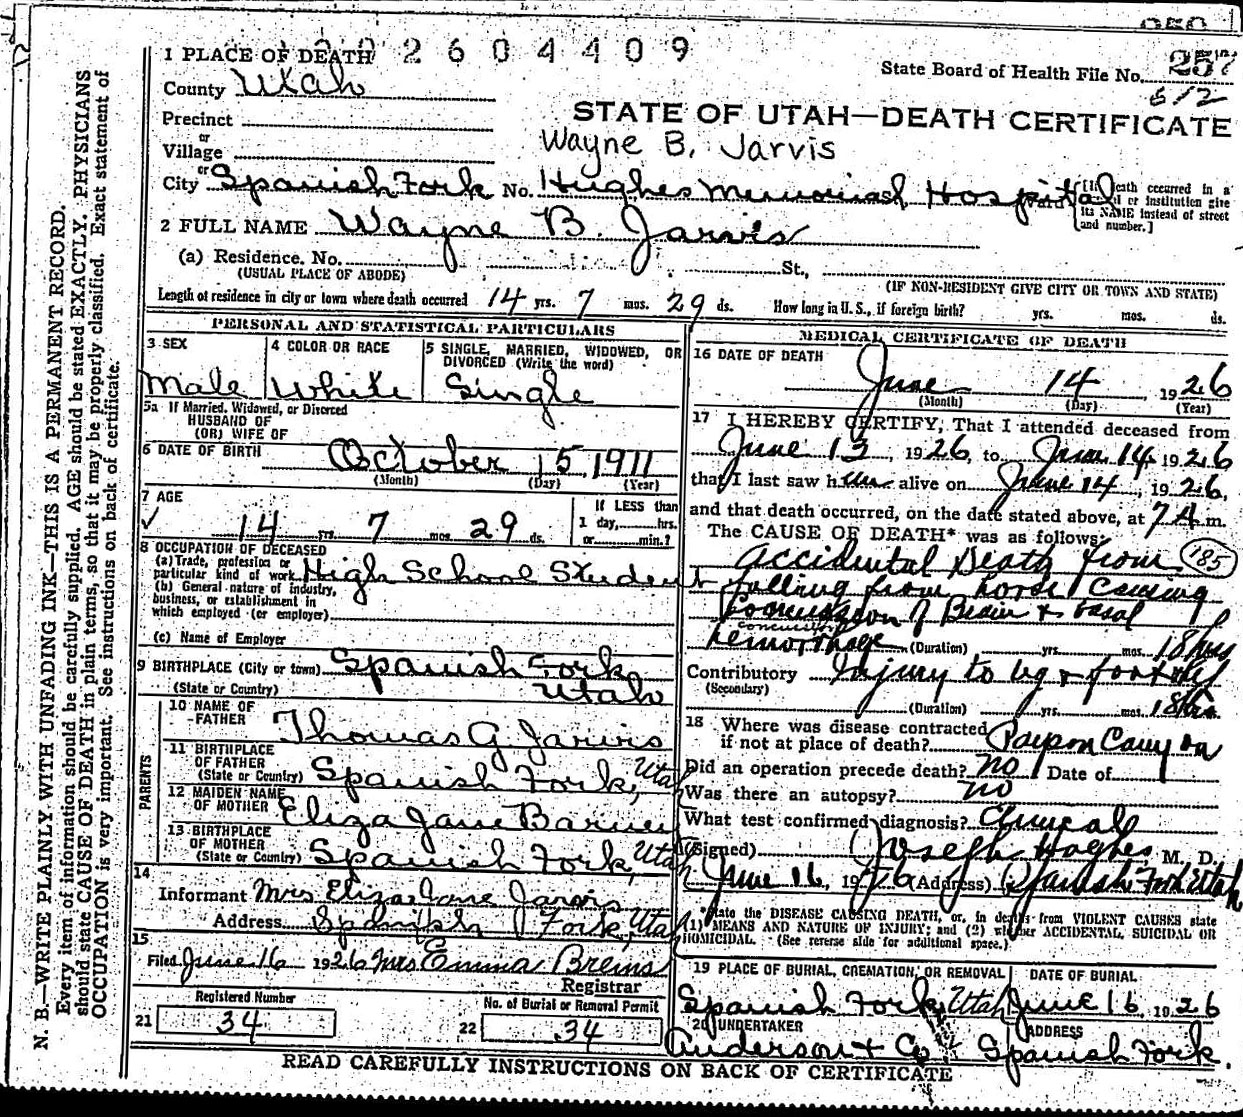 1 PLACE OF DEATH
2 6 0 4 4 0 9
State Board of Health File No. 257
County Utah
512
Precinct
STATE OF UTAH—DEATH CERTIFICATE
or
Village
Wayne B. Jarvis
or
City Spanish Fork No. Hughes Memorial Hospital
death occurred in a
or institution give
its NAME instead of street
and number.]
2 FULL NAME Wayne B. Jarvis
(a) Residence. No. St.,
(USUAL PLACE OF ABODE)
(IF NON-RESIDENT GIVE CITY OR TOWN AND STATE)
Length of residence in city or town where death occurred 14 yrs. 7 mos. 29 ds. How long in U. S., if foreign birth? yrs. mos. ds.
PERSONAL AND STATISTICAL PARTICULARS
3 SEX
Male
4 COLOR OR RACE
White
5 SINGLE, MARRIED, WIDOWED, OR
DIVORCED (Write the word)
Single
5a If Married, Widowed, or Divorced
HUSBAND OF
(OR) WIFE OF
6 DATE OF BIRTH October 15, 1911
(Month) (Day) (Year)
7 AGE
14 yrs. 7 mos. 29 ds.
If LESS than
1 day, hrs.
or min.?
8 OCCUPATION OF DECEASED
(a) Trade, profession or
particular kind of work High School Student
(b) General nature of industry,
business, or establishment in
which employed (or employer)
(c) Name of Employer
9 BIRTHPLACE (City or town) Spanish Fork
(State or Country) Utah
PARENTS
10 NAME OF
FATHER Thomas G Jarvis
11 BIRTHPLACE
OF FATHER
(State or Country) Spanish Fork, Utah
12 MAIDEN NAME
OF MOTHER Eliza Jane Barney
13 BIRTHPLACE
OF MOTHER
(State or Country) Spanish Fork, Utah
14
Informant Mrs Eliza Jane Jarvis
Address Spanish Fork, Utah
15
Filed June 16 1926 Mrs Emma Brems
Registrar
Registered Number
21 34
No. of Burial or Removal Permit
22 34
MEDICAL CERTIFICATE OF DEATH
16 DATE OF DEATH
June 14 1926
(Month) (Day) (Year)
17 I HEREBY CERTIFY, That I attended deceased from
June 13, 1926, to June 14 1926
that I last saw him alive on June 14, 1926,
and that death occurred, on the date stated above, at 7 A m.
The CAUSE OF DEATH* was as follows:
Accidental Death from 185
falling from horse causing
Concussion of Brain & basal
concussion
hemorrhage (Duration) yrs. mos. 18 hrs
Contributory Injury to leg &
(Secondary)
(Duration) yrs. mos. 18 hrs
18 Where was disease contracted
if not at place of death? Payson Canyon
Did an operation precede death? no Date of
Was there an autopsy? no
What test confirmed diagnosis? Clinical
(Signed) Joseph Hughes M. D.
June 16, 1926 (Address) Spanish Fork Utah
state the DISEASE CAUSING DEATH, or, in deaths from VIOLENT CAUSES state
(1) MEANS AND NATURE OF INJURY; and (2) whether ACCIDENTAL, SUICIDAL OR
HOMICIDAL. (See reverse side for additional space.)
19 PLACE OF BURIAL, CREMATION, OR REMOVAL DATE OF BURIAL
Spanish Fork, Utah June 16, 1926
20 UNDERTAKER ADDRESS
Anderson & Co. Spanish Fork.
READ CAREFULLY INSTRUCTIONS ON BACK OF CERTIFICATE
N. B.—WRITE PLAINLY WITH UNFADING INK—THIS IS A PERMANENT RECORD.
Every item of information should be carefully supplied. AGE should be stated EXACTLY. PHYSICIANS
should state CAUSE OF DEATH in plain terms, so that it may be properly classified. Exact statement of
OCCUPATION is very important. See instructions on back of certificate.